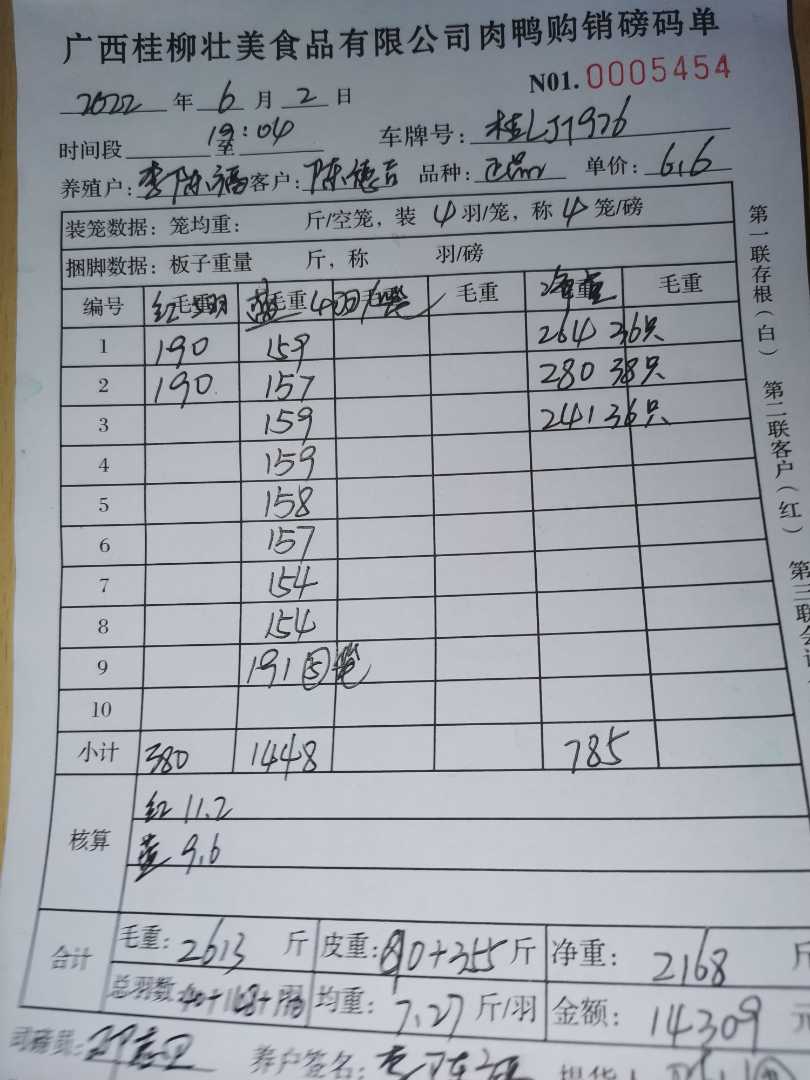 广西桂柳壮美食品有限公司肉鸭购销磅码单
2022 年 6 月 2 日 N01. 0005454
时间段 19:04 至 车牌号: 桂LJ7976
养殖户: 李陈福 客户: 陈德吉 品种: 正品 单价: 6.6
装笼数据: 笼均重: 斤/空笼, 装 4 羽/笼, 称 4 笼/磅
捆脚数据: 板子重量 斤, 称 羽/磅
编号 红 毛重 毛重 4羽/笼 毛重 净重 毛重
1 190 159 264 36只
2 190 157 280 38只
3 159 241 36只
4 159
5 158
6 157
7 154
8 154
9 191 ⑤笼
10
小计 380 1448 785
核算 红 11.2
蓝 9.6
合计 毛重: 2613 斤 皮重: 90+355 斤 净重: 2168 斤
总羽数 均重: 7.27 斤/羽 金额: 14309 元
司磅员: 养户签名: 李陈福
第一联存根(白) 第二联客户(红) 第三联会